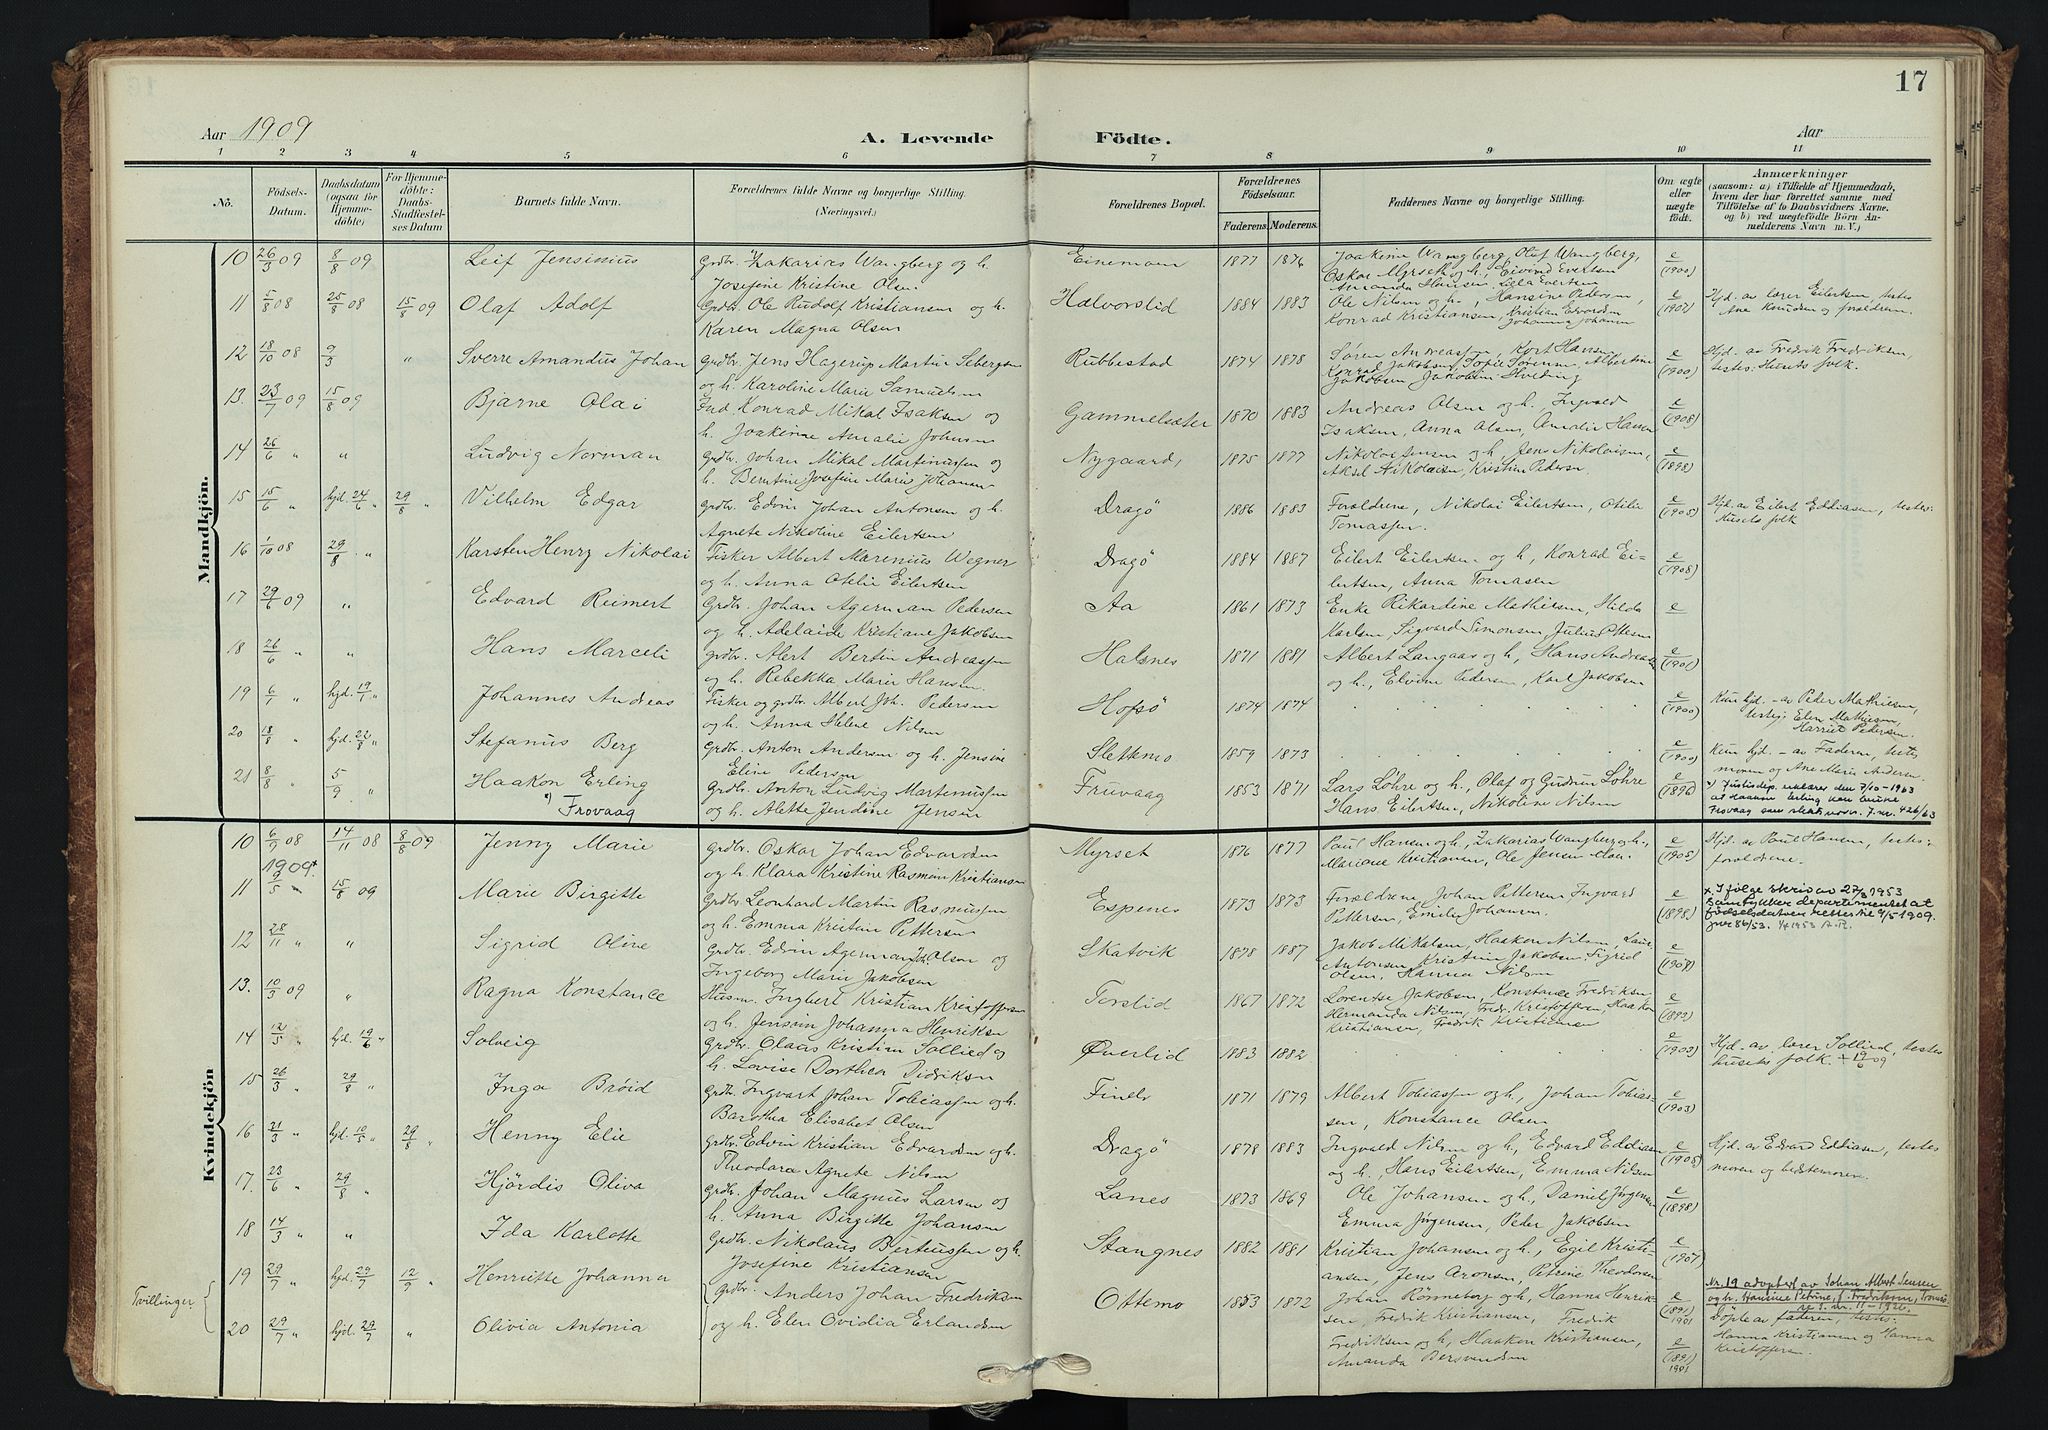 17
Aar 1909
A. Levende
Födte.
Aar
1 2 3 4 5 6 7 8 9 10 11
No.
Födsels-
Datum.
Daabsdatum
(ogsaa for
Hjemme-
döbte)
For Hjemme-
döbte:
Daabs-
Stadfæstel-
ses Datum
Barnets fulde Navn.
Forældrenes fulde Navne og borgerlige Stilling.
(Næringsvei.)
Forældrenes Bopæl.
Forældrenes
Födselsaar.
Faderens Moderens.
Faddernes Navne og borgerlige Stilling.
Om ægte
eller
uægte
födt.
Anmærkninger
(saasom: a) i Tilfælde af Hjemmedaab,
hvem der har forrettet samme med
Tilföielse af to Daabsvidners Navne,
og b) ved uægtefödte Börn An-
melderens Navn m. V.)
Mandkjön.
10 26/3 09 8/8 09 Leif Jensinius Grdbr. Zakarias Wangberg og h. Josefine Kristine Olsen Einemoen 1877 1876 Joakime Wangberg, Olaf Wangberg, Oskar Myrseth og h., Eivind Evertsen Amanda Hansen, Lilla Evertsen e (1900)
11 5/8 08 25/8 08 15/8 09 Olaf Adolf Grdbr. Ole Rudolf Kristiansen og h. Karen Magna Olsen Halvorslid 1884 1883 Ole Nilsen og h., Hansine Pedersen, Konrad Kristiansen, Kristian Edvardsen Johanna Johansen e (1907) Hjd. av lærer Eilertsen, testes Ane Knudsen og foreldrene.
12 18/10 08 9/3 " Sverre Amandus Johan Grdbr. Jens Hagerup Martin Sebergsen og h. Karoline Marie Samuelsen Rubbestad 1874 1878 Søren Andreassen, Kort Hansen, Konrad Jakobsen, Sofie Sørensen, Albertine Jakobsen Jakobsen Hveding e (1900) Hjd. av Fredrik Fredriksen, testes: Husets folk.
13. 23/7 09 15/8 09 Bjarne Olai Ind. Konrad Mikal Isaksen og h. Joakime Amalie Johnsen Gammelsæter 1870 1883 Andreas Olsen og h. Ingvald Isaksen, Anna Olsen, Amalie Hansen e (1908)
14 26/6 " " Ludvig Norman Grdbr. Johan Mikal Martinussen og h. Berntine Josefine Marie Johansen Nygaard, 1875 1877 Nikolai Jensen og h., Jens Nikolaisen, Aksel Nikolaisen, Kristine Pedersen e (1898)
15 15/6 " hjd. 24/6 " 29/8 " Vilhelm Edgar Grdbr. Edvin Johan Antonsen og h. Agnete Nikoline Eilertsen Dragö 1886 1883 Foreldrene, Nikolai Eilertsen, Otilie Tomassen. e (1905) Hjd. av Eilert Eddiasen, testes: Husets folk
16 1/10 08 29/8 " Karsten Henry Nikolai Fisker Albert Marenius Wegner og h. Anna Otelie Eilertsen Dragö 1884 1887 Eilert Eilertsen og h, Konrad Ei- lertsen, Anna Tomasen e (1908)
17 29/6 09 " Edvard Reimert Grdbr. Johan Agerman Pedersen og h. Adelaide Kristiane Jakobsen Aa 1861 1873 Enke Rikardine Mathiesen, Hilda Karlsen, Sigvard Simonsen, Julius Ottesen e
18 26/6 " " Hans Marceli Grdbr. Alert Bertin Andreassen og h. Rebekka Marie Hansen. Halsnes 1871 1881 Albert Langaas og h, Hans Andreas og h., Elvine Pedersen, Karl Jakobsen e (1901)
19 6/1 " hjd. 19/1 " Johannes Andreas Fisker og grdbr. Albert Joh. Pedersen og h. Anna Helene Nilsen Hofsö 1874 1874 e (1900) Kun hjd. – av Peder Mathiesen, testes: Elen Mathiesen, Harriet Pedersen.
20 18/8 " hjd. 22/8 " Stefanus Berg Grdbr. Anton Andersen og h. Jensine Eline Pedersen Slettmo 1859 1873 e (1900) Kun hjd. – av Faderen, testes moren og Ane Marie Andersen.
21 8/8 " 5/9 " Haakon Erling *) Frovaag Grdbr. Anton Ludvig Martinussen og h. Alette Jendine Jensen Fruvaag 1853 1871 Lars Löhre og h., Olaf og Gudrun Löhre Hans Eilertsen, Nikoline Nilsen e (1896) *) Justisdep. erklærer den 7/10 - 1963 at Haakon Erling kan bruke Frovaag som slektsnavn. J.nr. 426/63
Kvindekjön
10 6/9 08 14/11 08 8/8 09 Jenny Marie Grdbr. Oskar Johan Edvardsen og h. Klara Kristine Rasmine Kristiansen Myrset 1876 1877 Paul Hansen og h., Zakarias Wangberg og h., Mariane Kristiansen, Ole Jensen e (1905) Hjd. av Paul Hansen, testes: foreldrene.
11 1909+ 9/5 15/8 09 Marie Birgitte Grdbr. Leonhard Martin Rasmussen og h. Emma Kristine Pettersen Espenes 1873 1873 Foreldrene, Johan Pettersen, Ingvard Pettersen, Emilie Johansen. e (1898) x. I følge skriv av 27/3 1953 samtykker departementet at fødselsdatoen rettes til 9/5 1909. jnr 86/53.
12 28/11 " " Sigrid Oline Grdbr. Edvin Agerman Olson og Ingeborg Marie Jakobsen Skatvik 1878 1887 Jakob Mikalsen, Haakon Nilsen, Laura Antonsen, Kristine Jakobsen, Sigrid Olsen, Hanna Nilsen e (1907)
13. 10/3 09 " Ragna Konstance Husm. Ingbert Kristian Kristoffersen og h. Jensine Johanna Henriksen Torslid 1867 1872 Lorentse Jakobsen, Konstance Fredriksen, Hermanda Nilsen, Fredr. Kristoffersen, Haakon Kristiansen, Fredrik Kristiansen e (1892)
14 12/5 hjd. 19/6 " Solveig Grdbr. Olaus Kristian Sollied og h. Lovise Dorthea Didriksen Överlid 1883 1882 e (1903) Hjd. av lærer Sollied, testes husets folk. + 19/6 09
15 26/3 " 29/8 " Inga Brøid Grdbr. Ingvart Johan Tobiassen og h. Barotha Elisabet Olsen Finelv 1871 1879 Albert Tobiassen og h, Johan Tobias- sen, Konstance Olsen e (1903)
16 21/3 " hjd. 10/5 " 29/8 " Henny Elie Grdbr. Edvin Kristian Edvardsen og h. Theodora Agnete Nilsen Dragö 1878 1883 Ingvald Nilsen og h, Edvard Eddiasen og h, Hans Eilertsen, Emma Nilsen e (1905) Hjd. av Edvard Eddiasen, testes moren og bedstemoren.
17. 23/6 " 29/8 " Hjördis Oliva Grdbr. Johan Magnus Larsen og h. Anna Birgitte Johansen Lanes 1873 1869 Ole Johansen og h., Daniel Jørgensen Emma Jørgensen, Peder Jakobsen e (1898)
18 14/3 " " Ida Karlotte Grdbr. Nikolaus Berteussen og h. Josefine Kristiansen Stangnes 1882 1881 Kristian Johansen og h., Egil Kristi- ansen, Jens Aronsen, Petrine Theodorsen e (1907)
Tvillinger
19 29/7 " hjd. 29/7 12/9 " Henriette Johanna Grdbr. Anders Johan Fredriksen Ottemo 1853 1872 Johan Rönneberg og h., Hanna Henrik- sen, Fredrik Kristiansen, Fredrik e (1891) 1901 Nr. 19 adoptert av Johan Albert Jensen og h. Hansine Petrine, f. Fredriksen, Tromsö
20 29/7 " hjd. 29/7 " Olivia Antonia og h. Elen Ovidia Erlandsen Fredriksen og h, Haakon Kristiansen, Amanda Bersvendsen e (1891) 1901 Döpte av faderen, testes: Hanna Kristiansen og Hanna Kristoffersen.